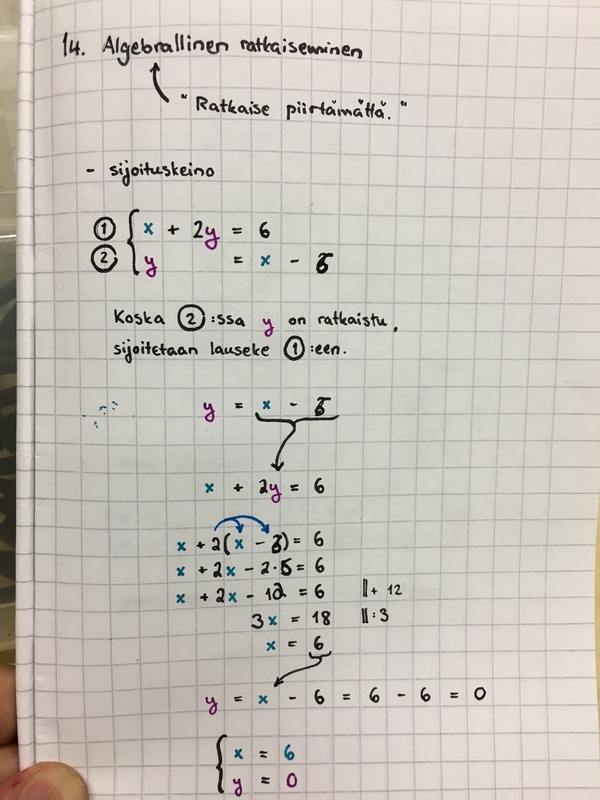 14. Algebrallinen ratkaiseminen
"Ratkaise piirtämättä."
- sijoituskeino
① { x + 2y = 6
② { y = x - 6
Koska ②:ssa y on ratkaistu,
sijoitetaan lauseke ①:een.
y = x - 6
x + 2y = 6
x + 2(x - 6) = 6
x + 2x - 2·6 = 6
x + 2x - 12 = 6 || + 12
3x = 18 || : 3
x = 6
y = x - 6 = 6 - 6 = 0
{ x = 6
{ y = 0